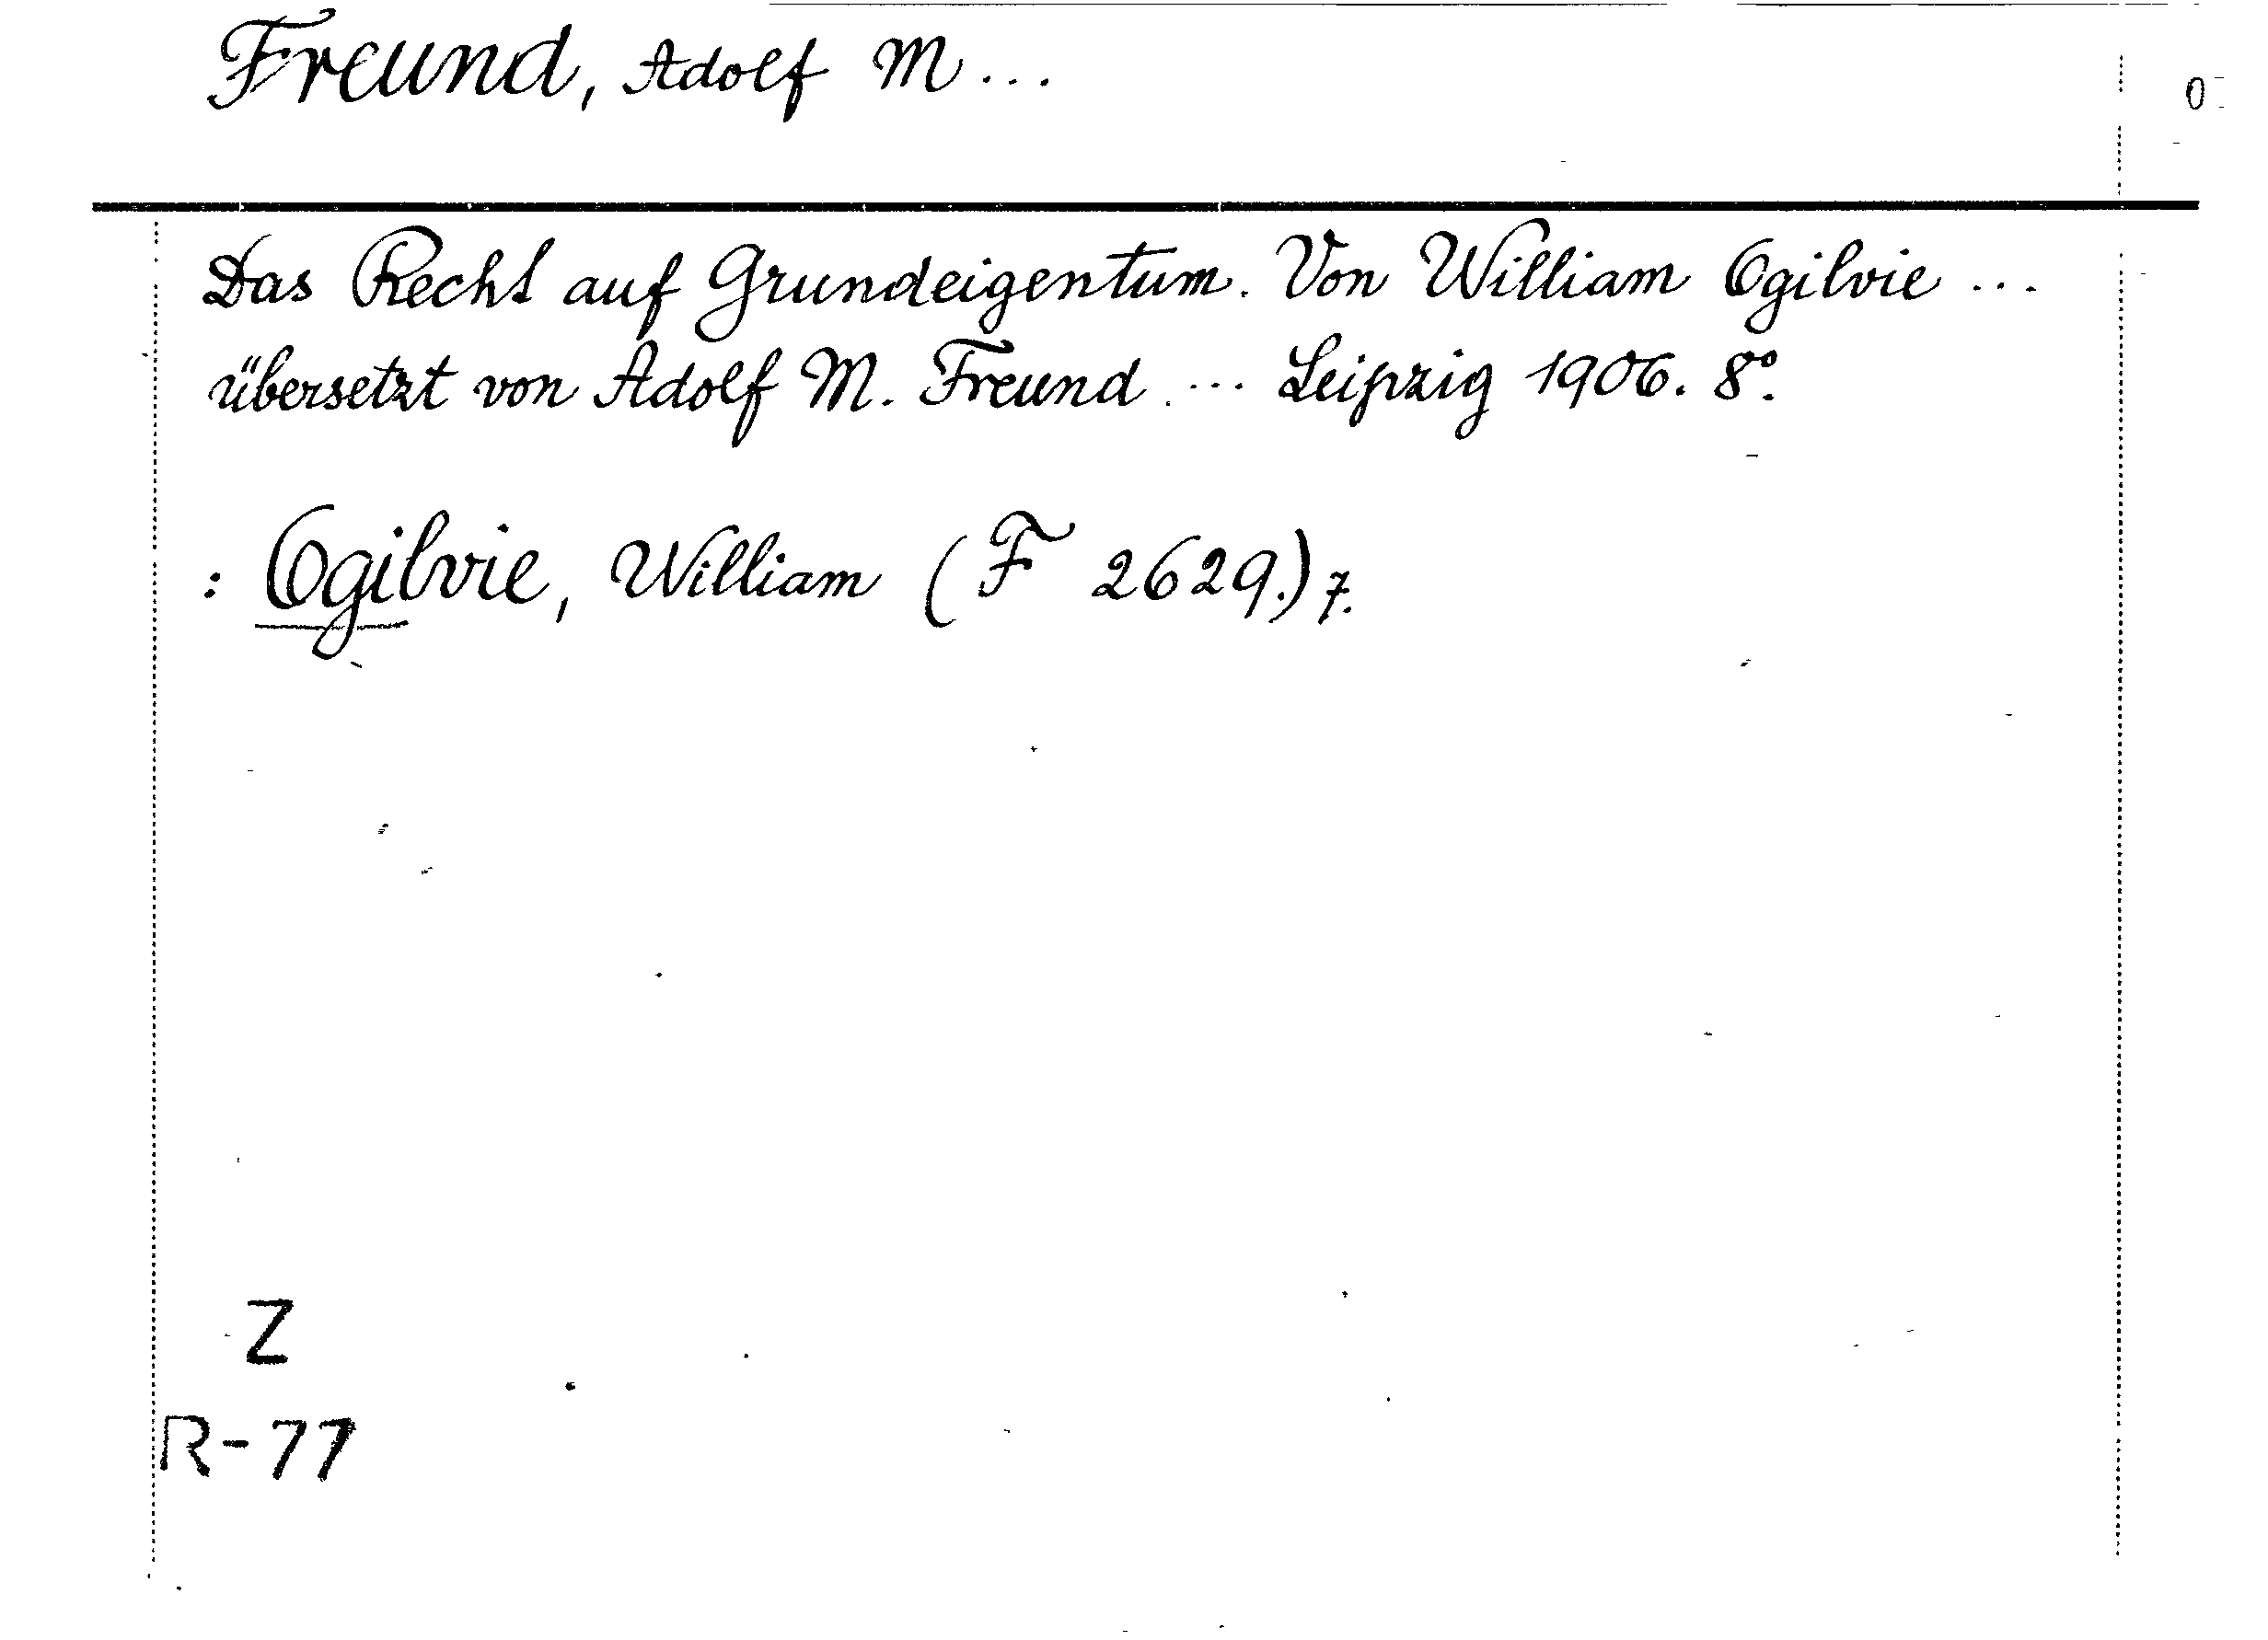 Freund, Adolf M...
Das Recht auf Grundeigentum. Von William Ogilvie ...
übersetzt von Adolf M. Freund ... Leipzig 1906. 8°.
: Ogilvie, William (F 2629.) 7.
Z
R-77